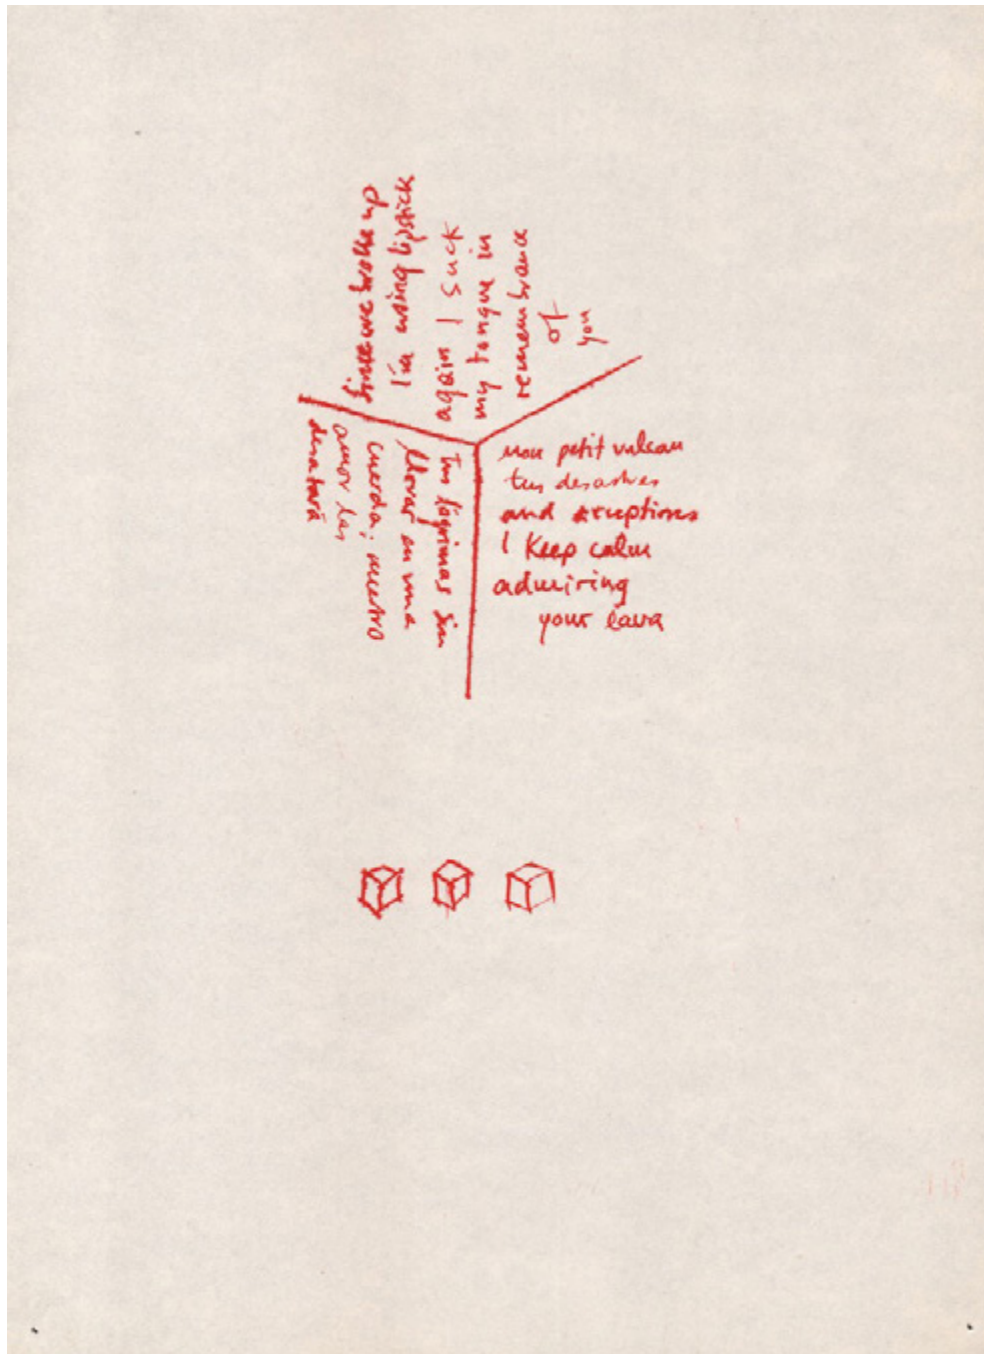 since we broke up
I'm using lipstick
again I suck
my tongue in
remembrance
of
you
mon petit vulcan
tus desastres
and eruptions
I keep calm
admiring
your lava
Tus lágrimas sin
llorar en una
cuerda; nuestro
amor las
desatará